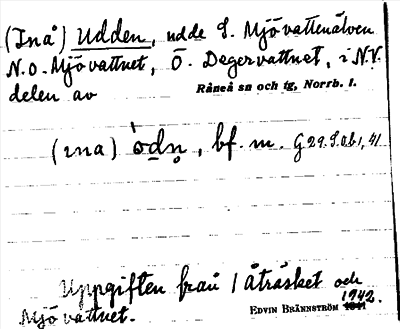 (Inå) Udden, udde S. Mjövattenälven
N.O. Mjövattnet, Ö. Degervattnet, i N.V.
delen av Råneå sn och tg, Norrb. l.
(ına) òdn̥, bf. m. G 29. S.
Uppgiften från 1 Åträsket och
Mjövattnet. EDVIN BRÄNNSTRÖM 1942.